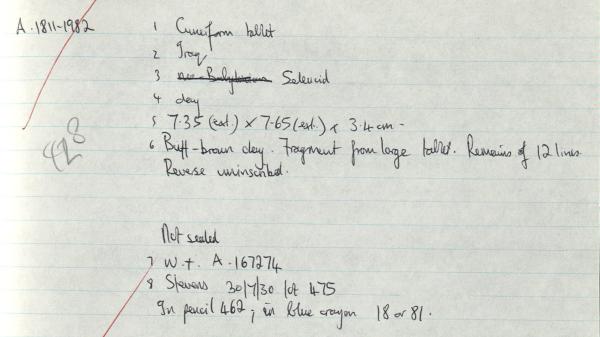 A.1811-1982
1 Cuneiform tablet
2 Iraq
3 neo-Babylonian Seleucid
4 clay
5 7.35 (ext.) x 7.65 (ext.) x 3.4 cm -
6 Buff-brown clay. Fragment from large tablet. Remains of 12 lines.
Reverse uninscribed.
428
Not sealed
7 W.t. A.167274
8 Stevens 30/7/30 lot 475
In pencil 462; in blue crayon 18 or 81.